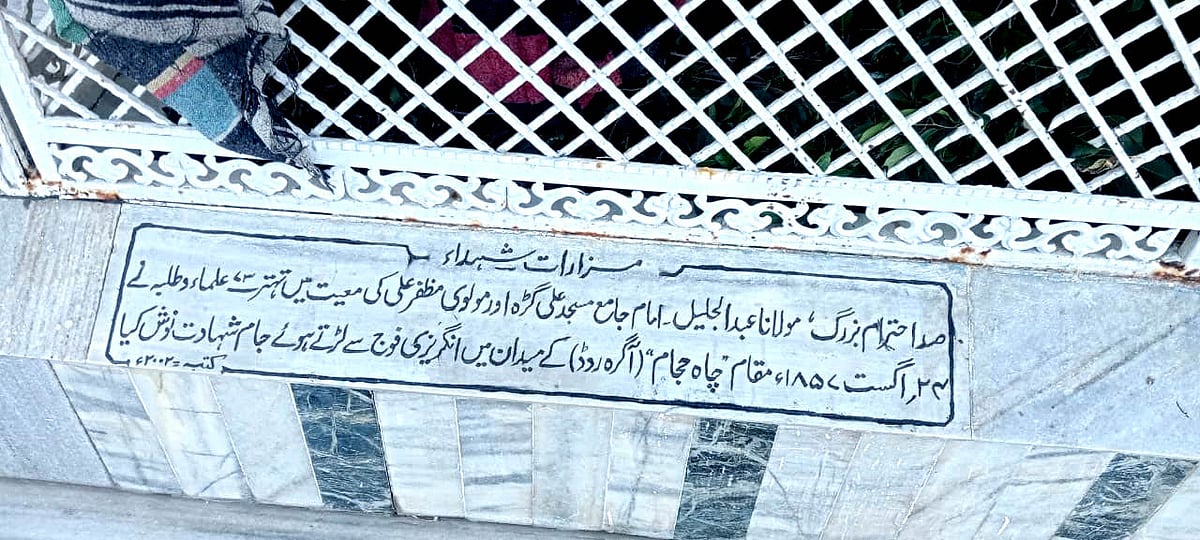 مزارات شہداء
صد احترام بزرگ، مولانا عبدالجلیل۔ امام جامع مسجد علی گڑھ اور مولوی مظفر علی کی معیت میں تہتر ۷۳ علماء و طلبہ نے
۲۴ر اگست ۱۸۵۷ء مقام "چاہ حجام" (آگرہ روڈ) کے میدان میں انگریزی فوج سے لڑتے ہوئے جام شہادت نوش کیا
کتبہ ۲۰۰۲ء